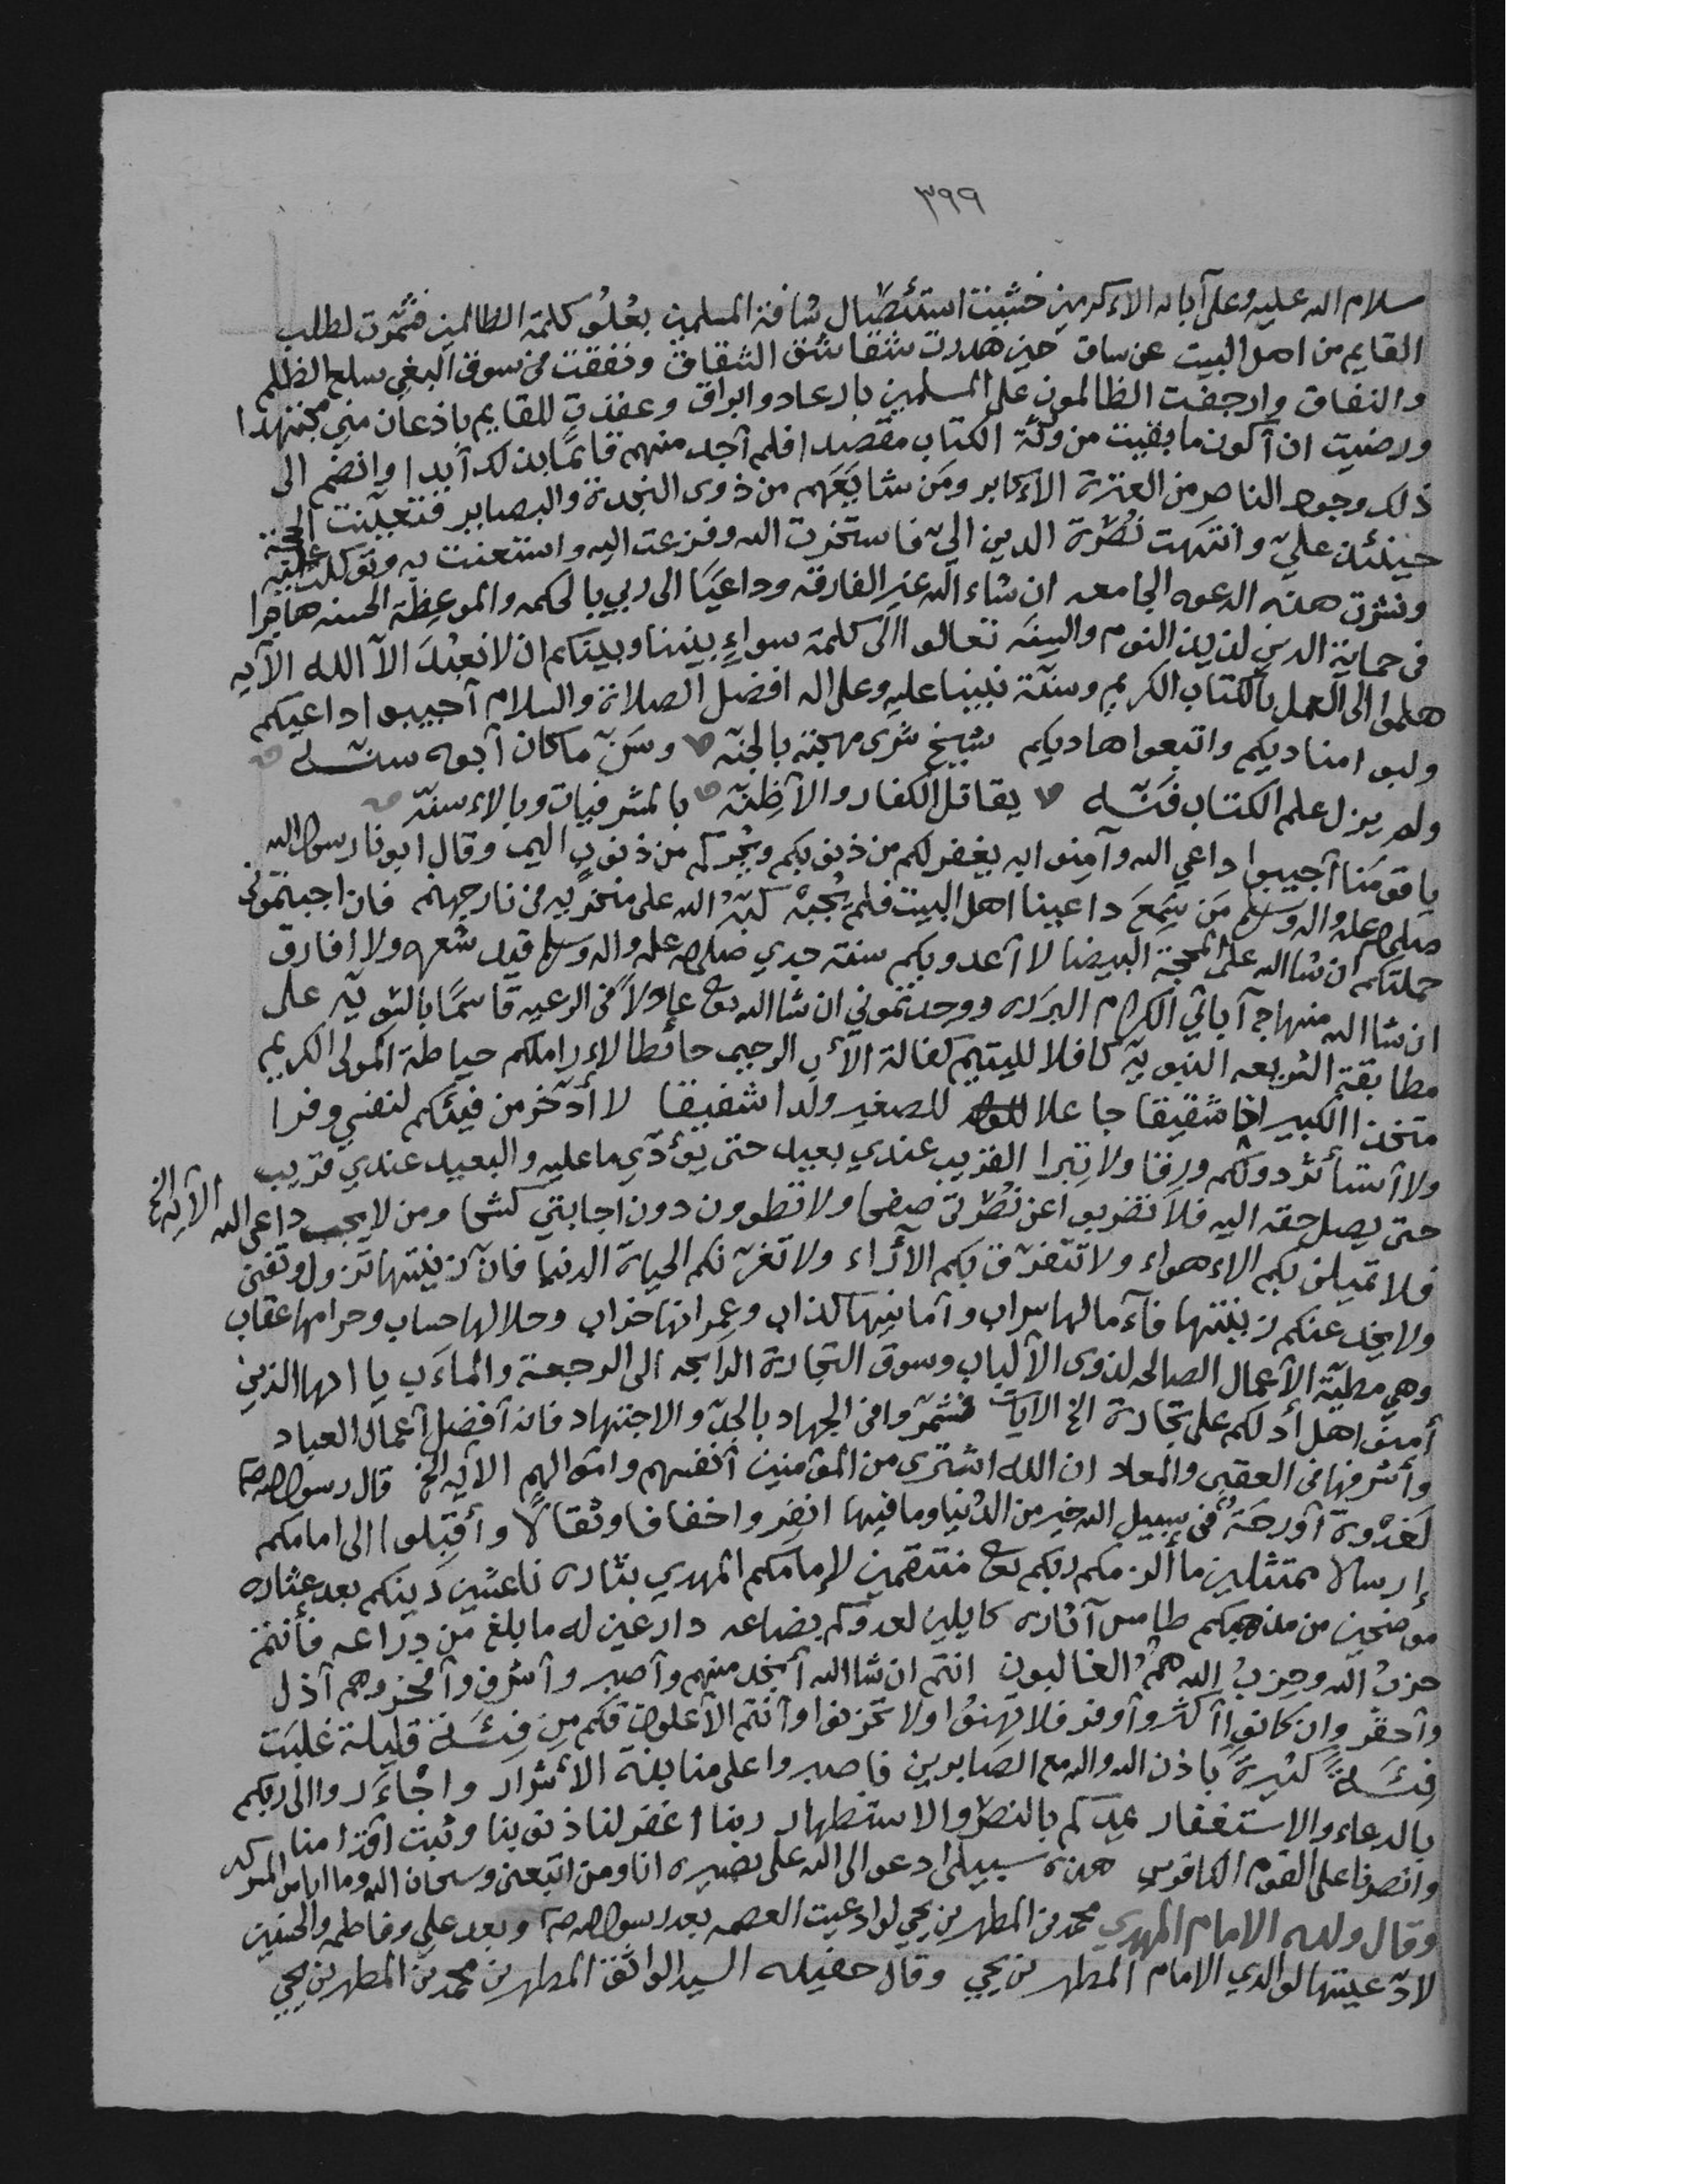 ٣٩٩
سلام الله عليه وعلى آبائه الاكرمين خشيت استئصال شافة المسلمين بعُلوُ كلمة الظالمين فشمّرت لطلب
القايم من اهل البيت عن ساق حين هدرت شقاشق الشقاق ونفقت في سوق البغي سلع الظلم
والنفاق وارجفت الظالمون على المسلمين بارعاد وابراق وعقدت للقايم باذعان مني مجتهدا
ورضيت ان أكون ما بقيت من ورثة الكتاب مقتصدا فلم أجد منهم قائمًا بذلك أبدا وانضم الى
ذلك وجوه الناصر من العترة الأكابر ومَن شايَعَهم من ذوى النجدة والبصاير فتعيّنت الحجة
حينئذ عليّ وانتهت نُصْرة الدين اليّ فاستخرت الله وفزعت اليه واستعنت به وتوكلت عليه
ونشرت هذه الدعوه الجامعه ان شاء الله غير الفارقه وداعيًا الى ربي بالحكمه والموعظة الحسنه هاجرا
في حماية الدين لذيذ النوم والسِنَه تعالوا الى كلمة سواءٍ بيننا وبينكم ان لا نعبُدَ الاّ الله الآيه
هلموا الى العمل بالكتاب الكريم وسنّة نبينا عليه وعلى اله افضل الصلاة والسلام أجيبوا داعيكم
ولبوا مناديكم واتبعوا هاديكم شيخ شرى مهجته بالجنّه وسَنّ ما كان أبوه سنّه
ولم يزل علم الكتاب فنّه يقاتل الكفار والأظنّه بالمشرفيات وبالاسنّه
يا قومَنا أجيبوا داعي الله وآمنوا به يغفر لكم من ذنوبكم ويُجركم من عذابٍ اليم وقال ابونا رسول الله
صلى الله عليه واله وسلم مَن سَمِعَ داعينا اهل البيت فلم يُجبْه كبّهُ الله على منخريه في نار جهنم فان اجبتموني
حملتكم ان شا الله على المحجة البيضا لا أعدو بكم سنة جدي صلى الله عليه واله وسلم قيد شعره ولا افارق
ان شا الله منهاج آبائي الكرام البرَره ووجدتموني ان شا الله تعالى عادلاً في الرعيه قاسمًا بالسّويّه على
مطابقة الشريعه النبويّة كافلا لليتيم كفالة الأب الرحيم حائطا لاراملكم حياطة المولى الكريم
متخذا الكبير اخا شقيقا جاعلا للصغير ولدا شفيقا لا أدّخر من فيئكم لنفسي وفرا
ولا أستأثر دونكم ورِقا ولا تِبرا القريب عندي بعيد حتى يؤدّي ما عليه والبعيد عندي قريب
حتى يصل حقه اليه فلا تضربوا عن نُصْرتى صفحا ولا تطوون دون اجابتي كشحا ومن لا يجب داعي الله الآيه الخ
فلا تميلن بكم الاهواء ولا تتفرّق بكم الأراء ولا تغرّنكم الحياة الدنيا فانّ زينتها تزول وتفنى
ولا يخدعنكم زينتها فآمالها سراب وأمانيها كذاب وعمرانها خراب وحلالها حساب وحرامها عقاب
وهي مطيّة الأعمال الصالحه لذوى الألباب وسوق التجارة الرابحه الى الرجعة والمآب يا ايها الذين
أمنوا هل أدلكم على تجارة الخ الايات فشمّروا في الجهاد بالجدّ والاجتهاد فانه أفضل أعمال العباد
وأشرفها في العقبى والمعاد ان الله اشترى من المؤمنين أنفسهم واموالهم الايه الخ قال رسول الله صلعم
لَغَدْوة أو رحَةُ في سبيل الله خير من الدُنيا وما فيها انفِروا خفافا وثقالًا وأقبِلوا الى امامكم
إرسالا ممتثلين ما ألزمكم ربكم تعالى منتقمين لإمامكم المهدي بثاره ناعشين دينكم بعد عثاره
موضحين من مذهبكم طامس آثاره كايلين لعدوّكم بصاعه دارعين له ما بلغ من ذِراعه فأنتم
حزبُ الله وحِزبُ الله همُ الغالبون انتم ان شا الله أنجد منهم وأصبر وأشرف وأفخر وهم أذل
وأحقر وان كانوا أكثر وأوفر فلا تهِنُوا ولا تحزنوا وأنتم الأعلون فكم مِن فِئَة قليلة غلبَت
فِئَةً كثيرةً باذن الله والله مع الصابرين فاصبروا على منابذة الأشرار واجأَروا الى ربكم
بالدعاء والاستغفار يمدكم بالنصر والاستظهار ربنا اغفر لنا ذنوبنا وثبت اقدامنا
وانصرنا على القوم الكافرين هذه سبيلي ادعو الى الله على بصيره انا ومن اتبعني وسبحان الله وما انا من المشركين
وقال ولده الامام المهدي محمد بن المطهر بن يحيى لو ادعيت العصمه بعد رسول الله صلعم وبعد علي وفاطمه والحسنين
لادّعيتها لوالدي الامام المطهر بن يحيى وقال حفيده السيد الواثق المطهر بن محمد بن المطهر بن يحيى